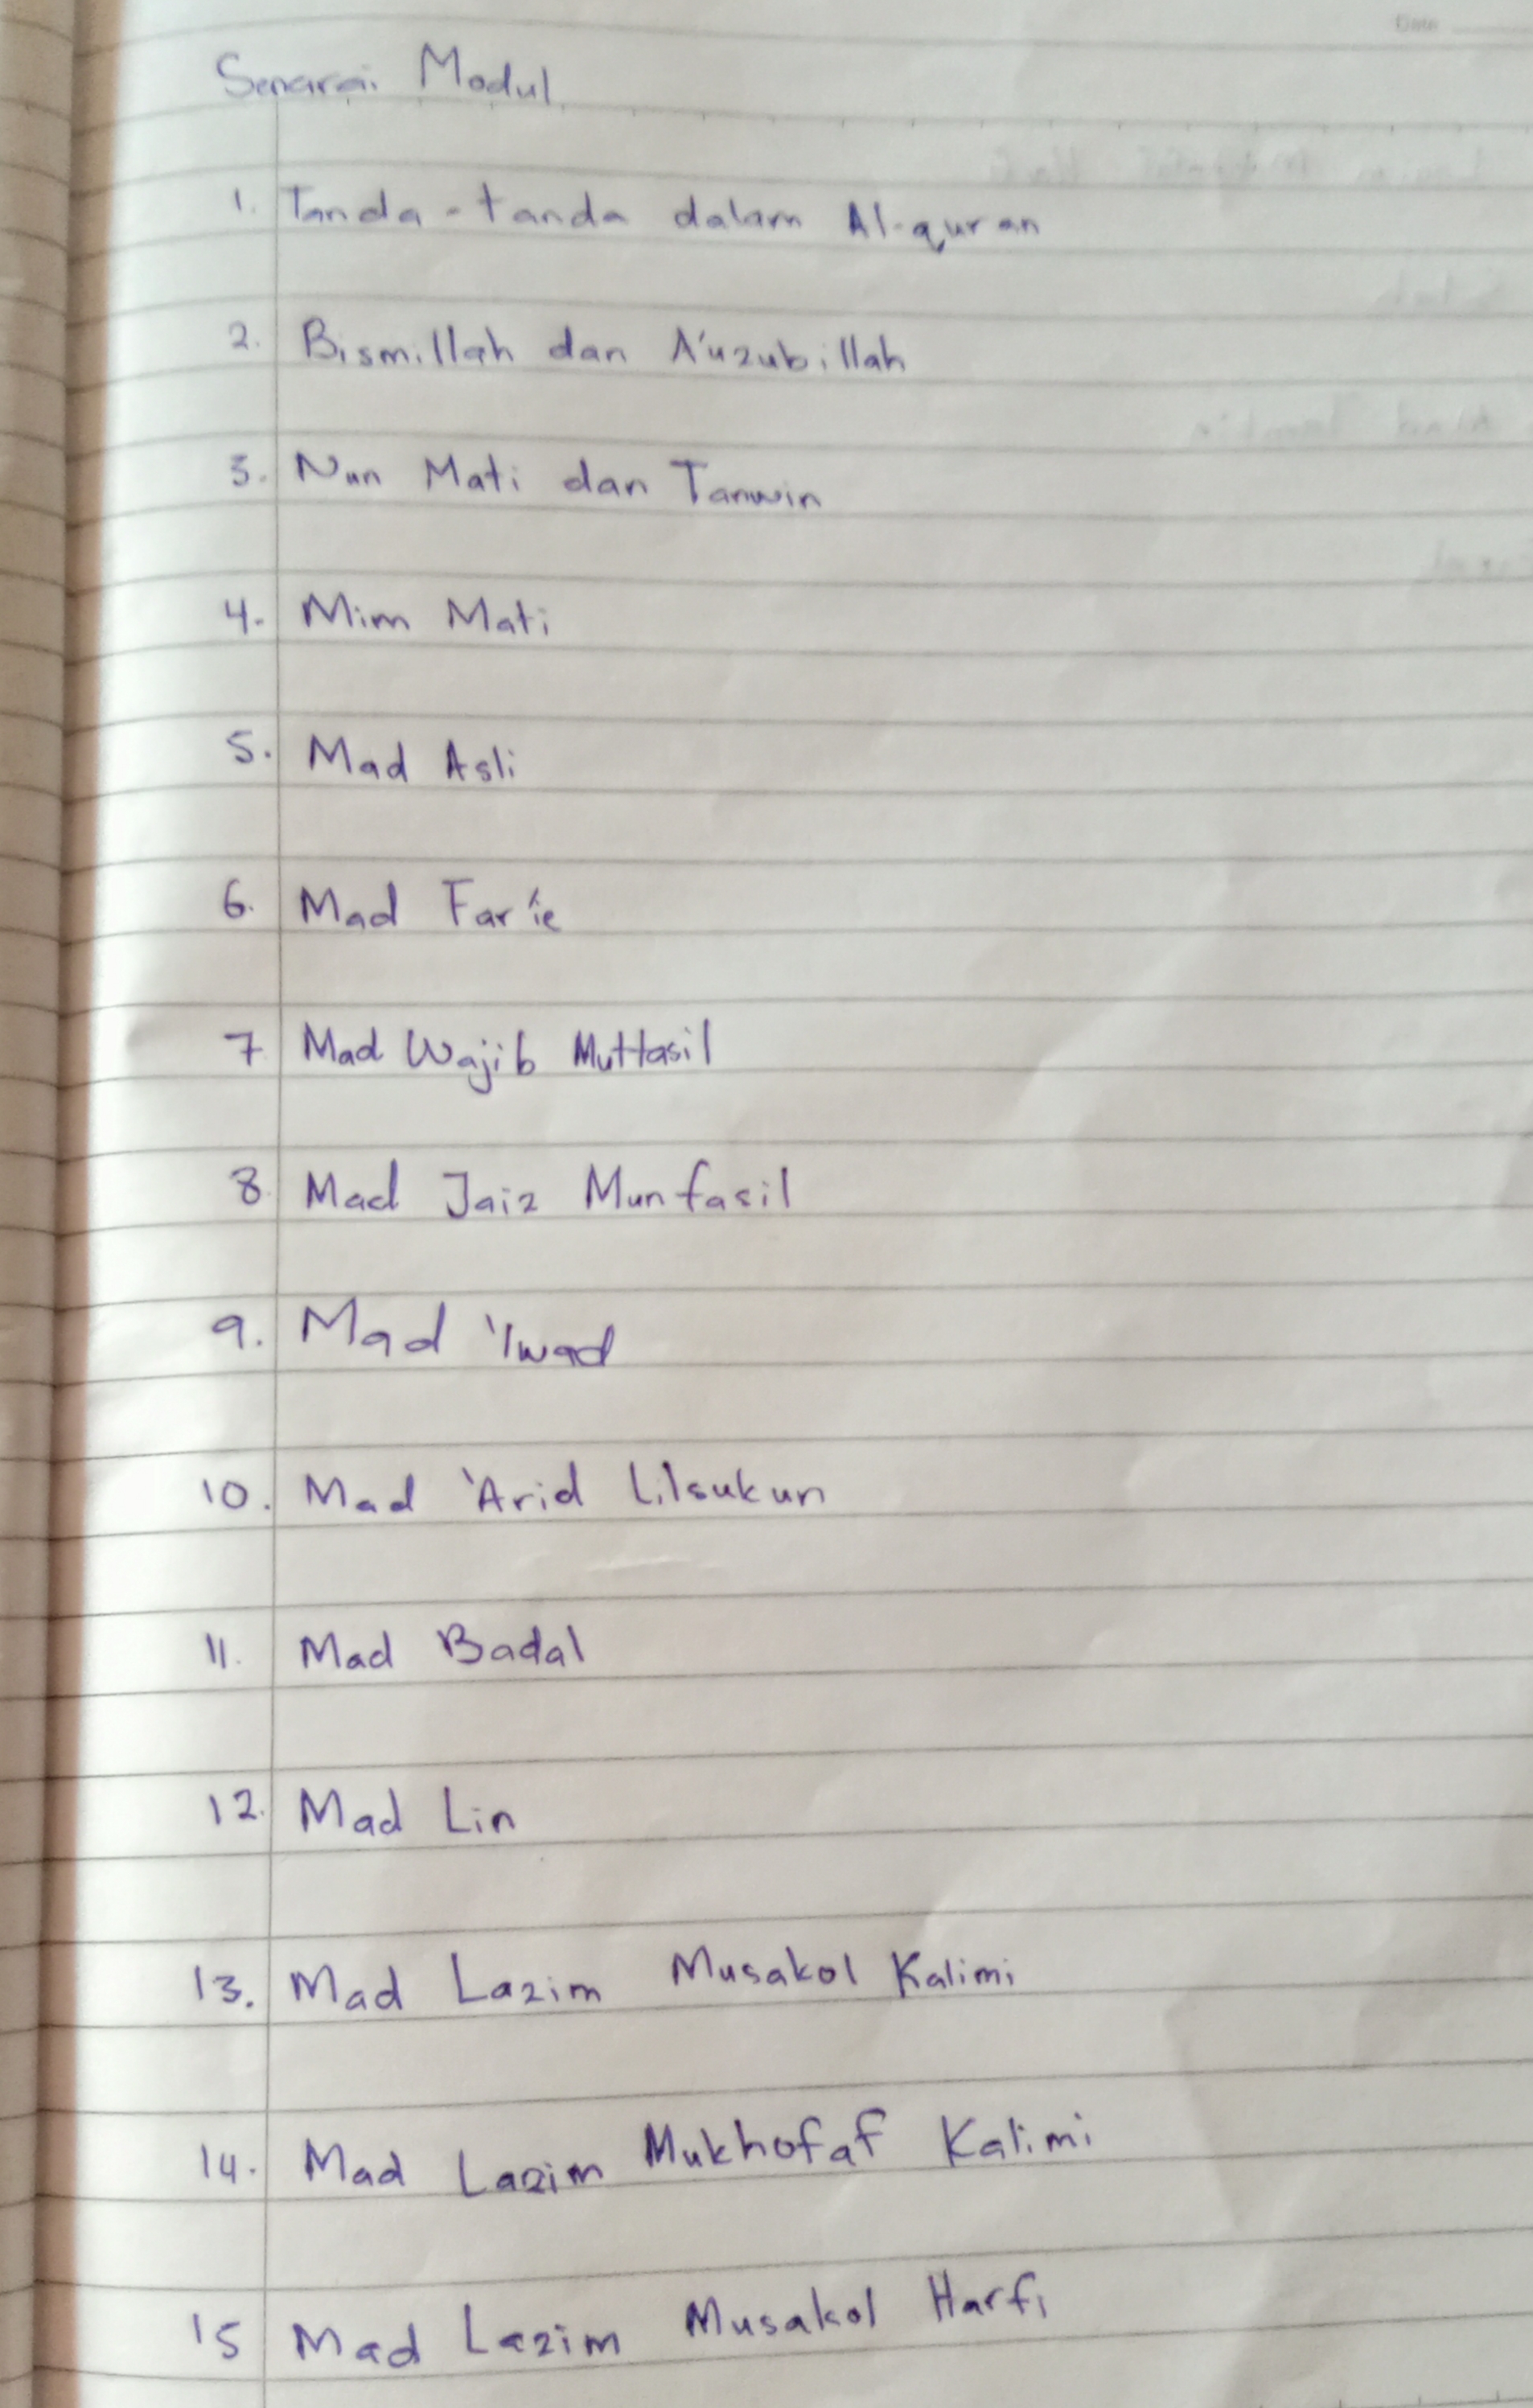 Date
Senarai Modul
1. Tanda-tanda dalam Al-quran
2. Bismillah dan A'uzubillah
3. Nun Mati dan Tanwin
4. Mim Mati
5. Mad Asli
6. Mad Far'ie
7 Mad Wajib Muttasil
8. Mad Jaiz Munfasil
9. Mad 'Iwad
10. Mad 'Arid Lilsukun
11. Mad Badal
12. Mad Lin
13. Mad Lazim Musakol Kalimi
14. Mad Lazim Mukhofaf Kalimi
15 Mad Lazim Musakol Harfi